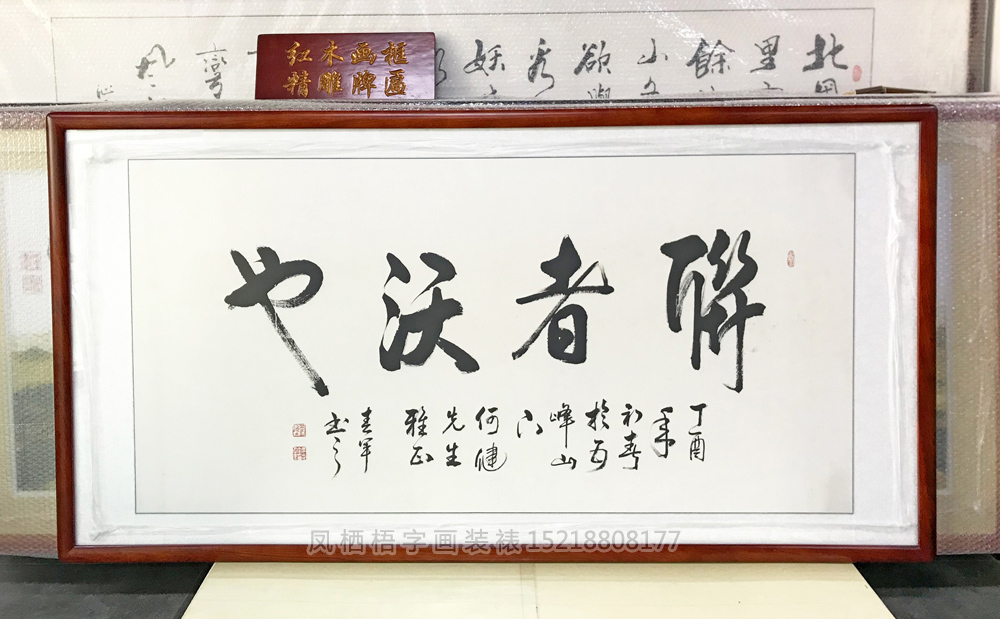 红木画框
精雕牌匾
北
里
餘
小
欲
妖
聯者沃也
丁酉
年
初春
於
峰山
下
何健
先生
雅正
春军
书之
凤栖梧字画装裱15218808177